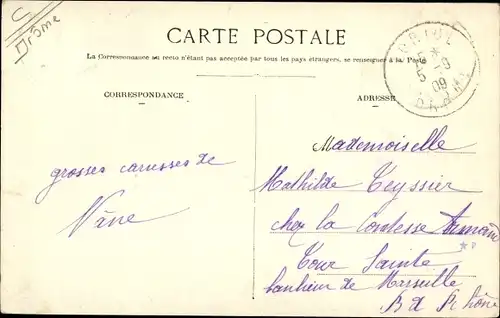 Drôme
CARTE POSTALE
La Correspondance au recto n'étant pas acceptée par tous les pays étrangers, se renseigner à la Poste
CORRESPONDANCE
ADRESSE
5 -9
09
DROME
grosses caresses de
Mademoiselle
Mathilde Teyssier
chez la Comtesse Armand
Tour Sainte
banlieue de Marseille
B d R hône